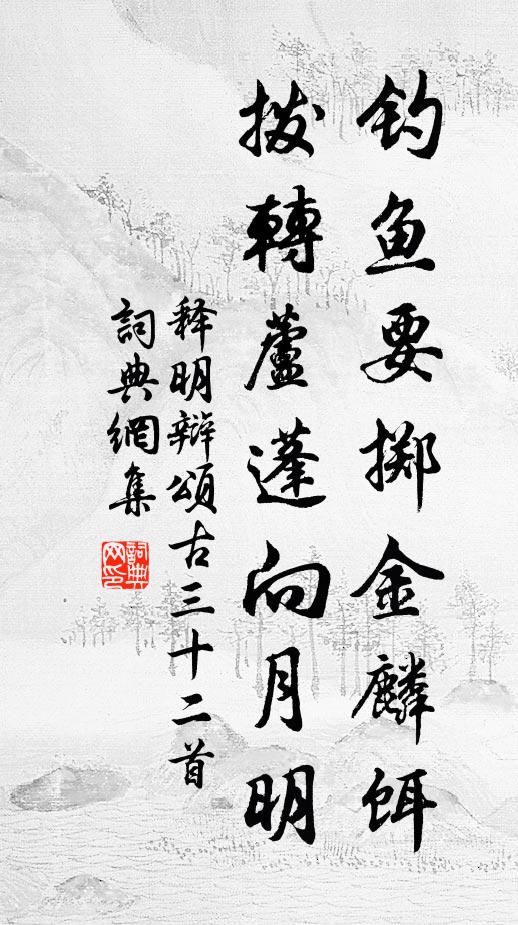 钓鱼要掷金麟饵
拨轉蘆蓬向月明
释明辯頌古三十二首
詞典網集
詞典网印